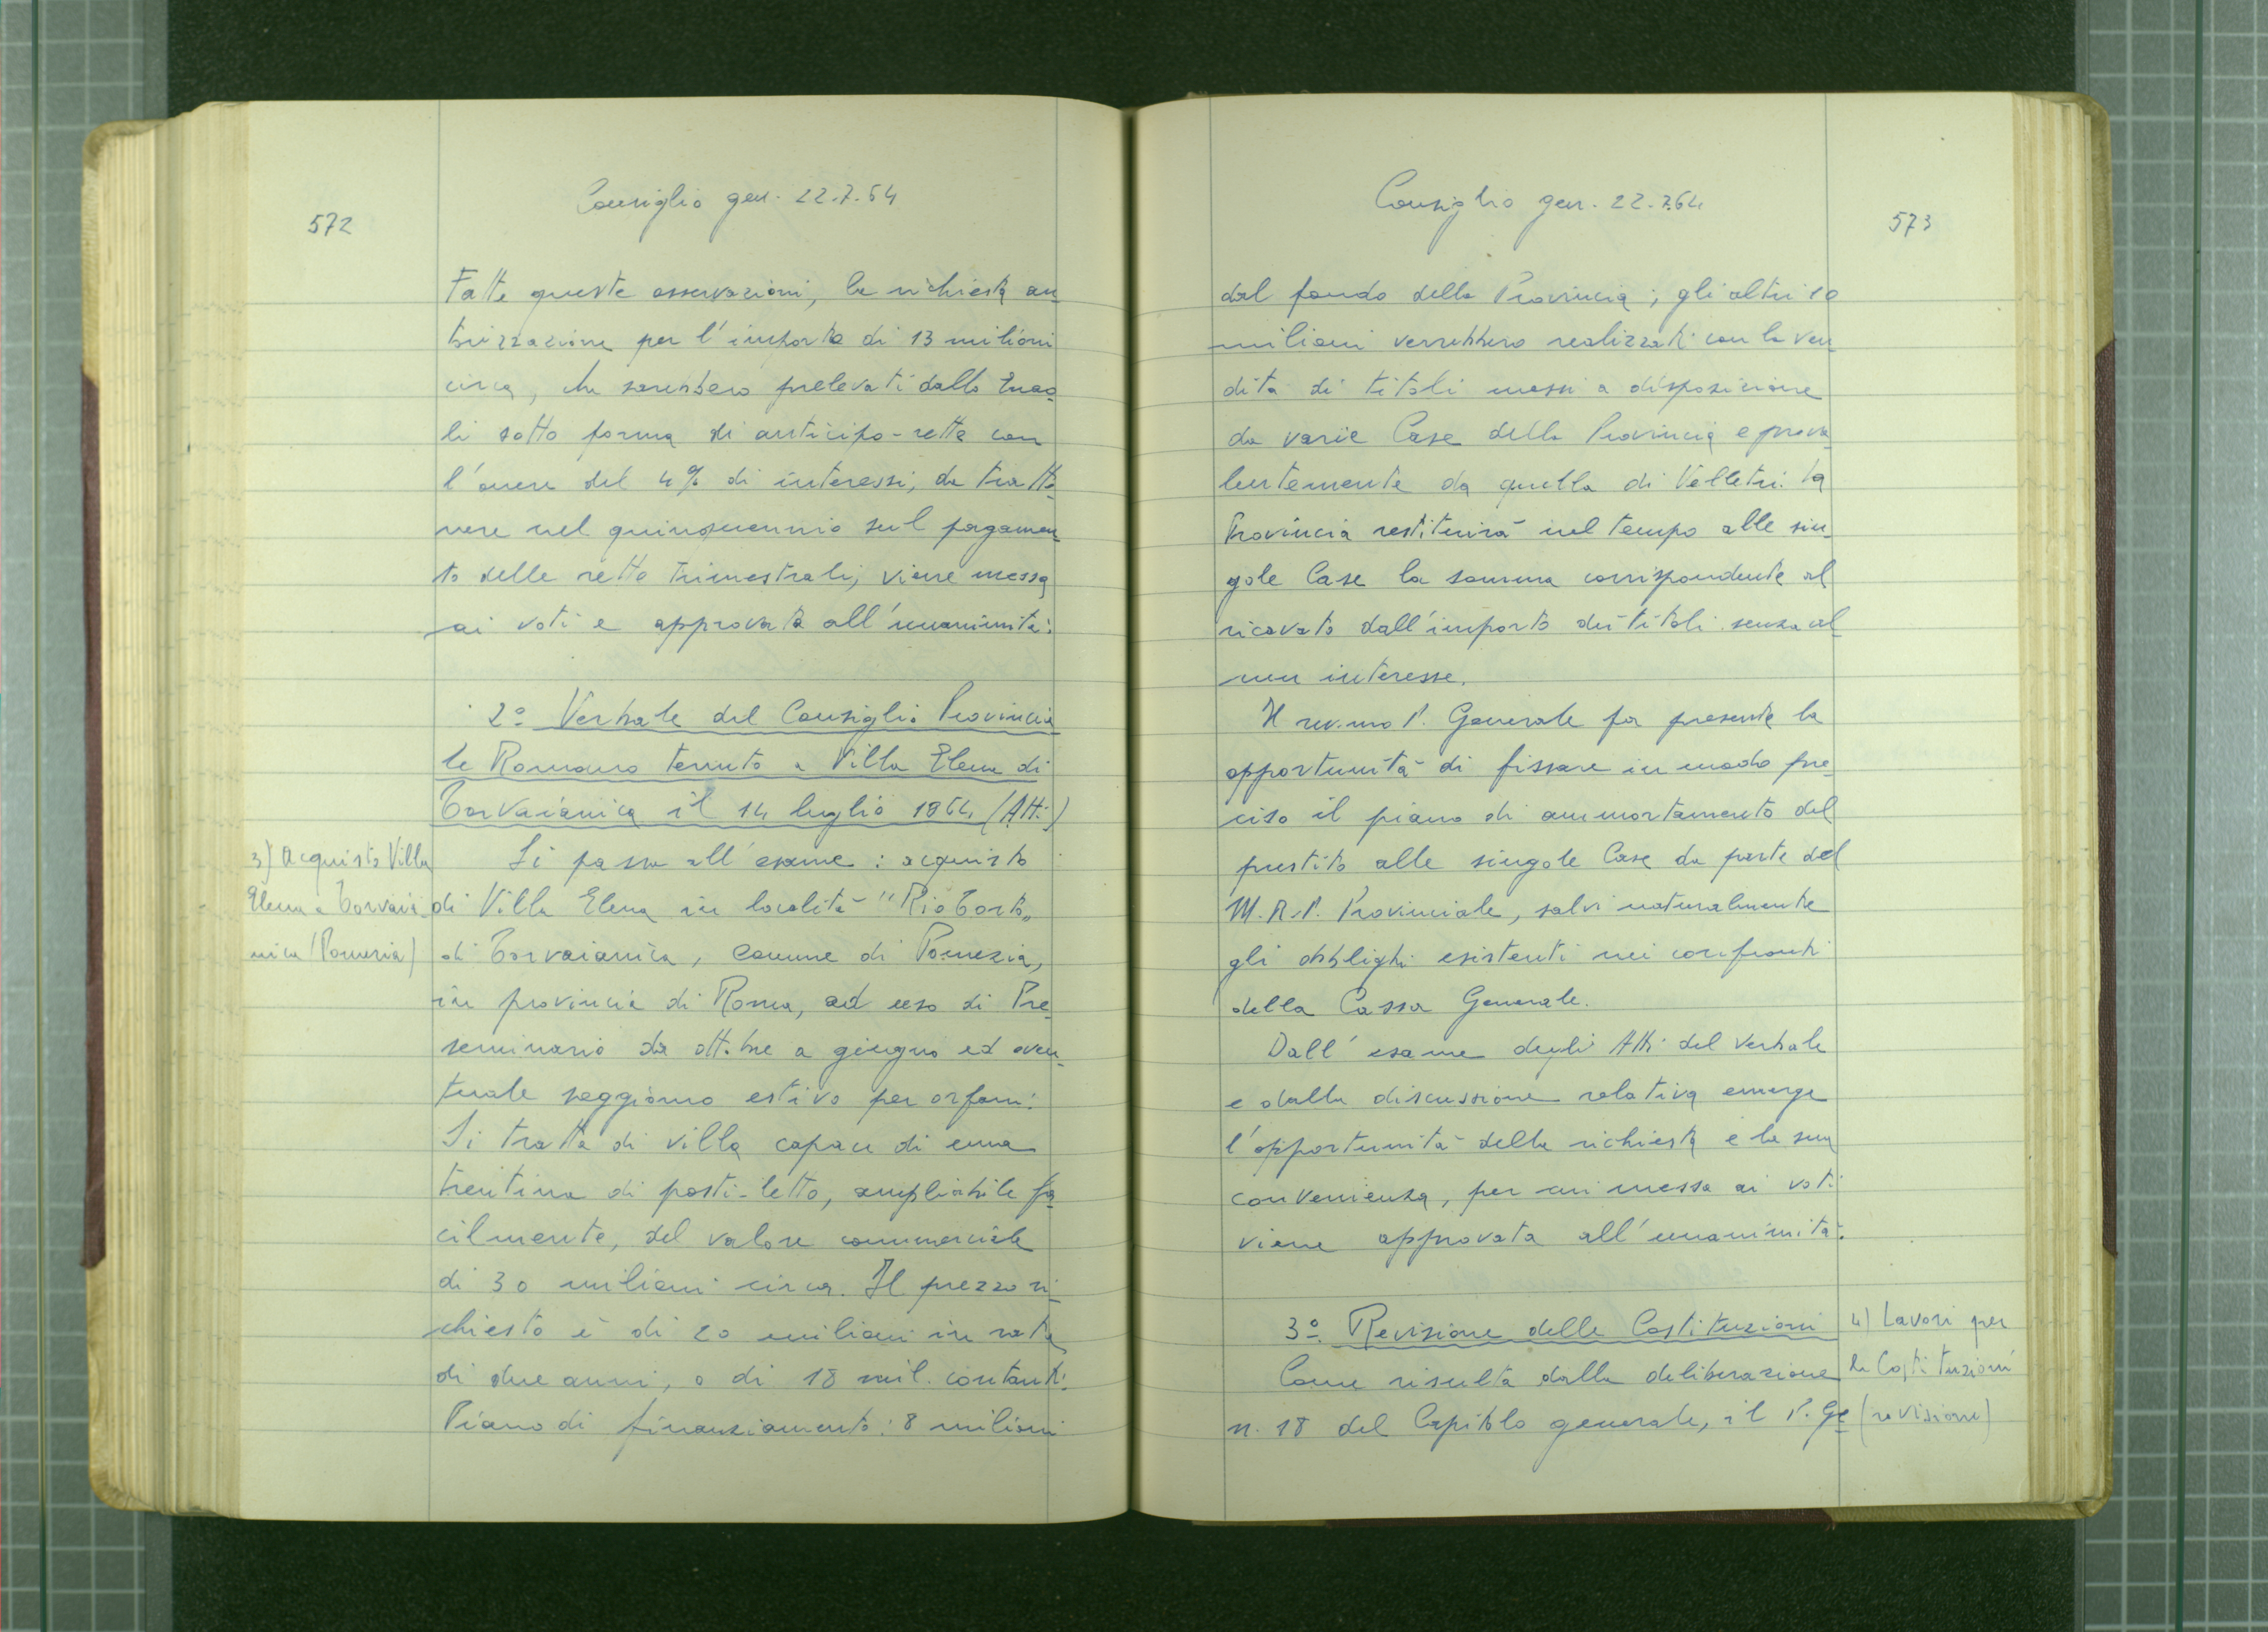 572
Consiglio gen. 22.7.64
Fatte queste osservazioni, la richiesta au
torizzazione per l'importo di 13 milioni
circa, che sarebbero prelevati dallo Enao
li sotto forma di anticipo-rette con
l'onere del 4% di interessi, da tratte
nere nel quinquennio sul pagamen
to delle rette trimestrali, viene messa
ai voti e approvata all'unanimità.
2º Verbale del Consiglio Provincia
le Romano tenuto a Villa Elena di
Torvaianica il 14 luglio 1964 (Atti)
3) Acquisto Villa
Elena a Torvaia
nica (Pomezia)
Si passa all'esame: acquisto
di Villa Elena in località "Rio Torto"
di Torvaianica, comune di Pomezia,
in provincia di Roma, ad uso di Pre
seminario da ottobre a giugno ed even
tuale soggiorno estivo per orfani.
Si tratta di villa capace di una
trentina di posti-letto, ampliabile fa
cilmente, del valore commerciale
di 30 milioni circa. Il prezzo ri
chiesto è di 20 milioni in rate
di due anni, o di 18 mil. contanti.
Piano di finanziamento: 8 milioni
Consiglio gen. 22.7.64
573
dal fondo della Provincia; gli altri 10
milioni verrebbero realizzati con la ven
dita di titoli messi a disposizione
da varie Case della Provincia e preva
lentemente da quella di Velletri. La
Provincia restituirà nel tempo alle sin
gole Case la somma corrispondente al
ricavato dall'importo dei titoli senza al
cun interesse.
Il rev.mo P. Generale fa presente la
opportunità di fissare in modo pre
ciso il piano di ammortamento del
prestito alle singole Case da parte del
M.R.P. Provinciale, salvi naturalmente
gli obblighi esistenti nei confronti
della Cassa Generale.
Dall'esame degli Atti del verbale
e dalla discussione relativa emerge
l'opportunità della richiesta e la sua
convenienza, per cui messa ai voti
viene approvata all'unanimità.
3º. Revisione delle Costituzioni
4) Lavori per
le Costituzioni
(revisione)
Come risulta dalla deliberazione
n. 18 del Capitolo generale, il P. Ge